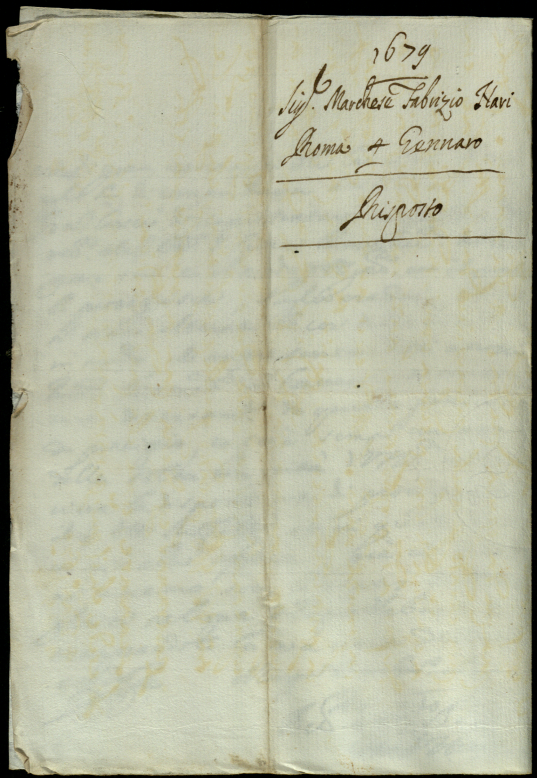 1679
Sig.r Marchese Fabrizio Nari
Roma 4 Gennaro
Risposto